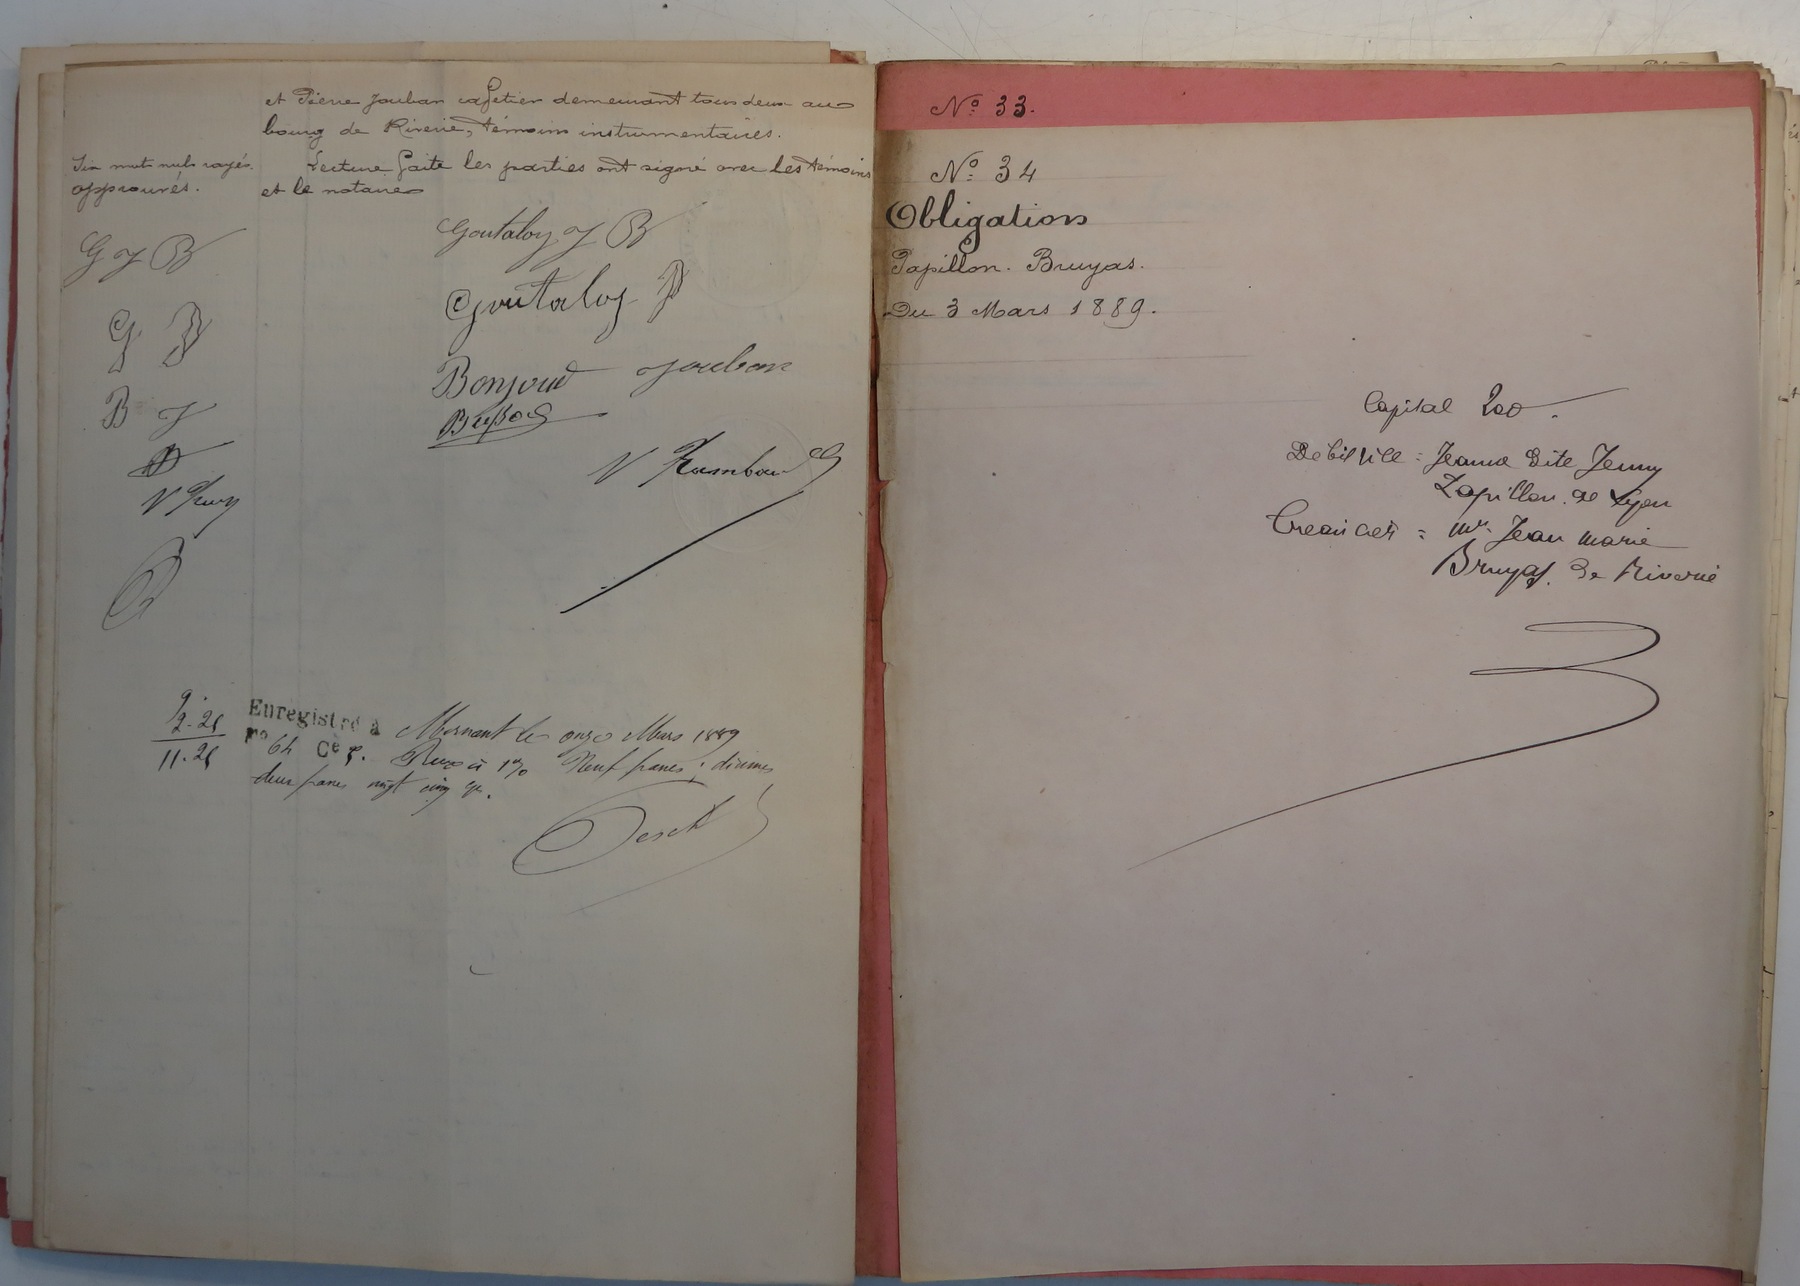 et Pierre Jouban cafetier demeurant tous deux au
bourg de Riverie, témoins instrumentaires.
Lecture faite les parties ont signé avec les témoins
et le notaire
Six mots nuls rayés
approuvés.
G J B
Goutaloy J B
G P
Goutaloy P
B J
Bonjour Jouban
9.
2.25
11.25
Enregistré à Mornant le onze Mars 1889
Fo 64 Ce 5. Reçu à 1% Neuf francs; décimes
deux francs vingt cinq c.
No 33.
No 34
Obligations
Papillon. Bruyas.
Du 3 Mars 1889.
Capital 200
Débitrice : Jeanne dite Jenny
Papillon de Lyon
Créancier : Mr. Jean Marie
Bruyas. de Riverie